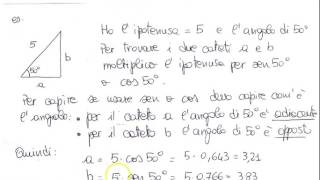 es.
Ho l'ipotenusa = 5 e l'angolo di 50°
Per trovare i due cateti a e b
moltiplico l'ipotenusa per sen 50°
o cos 50°
5
b
50°
a
Per capire se usare sen o cos devo capire com'è
l'angolo: • per il cateto a l'angolo di 50° è adiacente
• per il cateto b l'angolo di 50° è opposto
Quindi: a = 5 · cos 50° = 5 · 0,643 = 3,21
b = 5 · sen 50° = 5 · 0,766 = 3,83